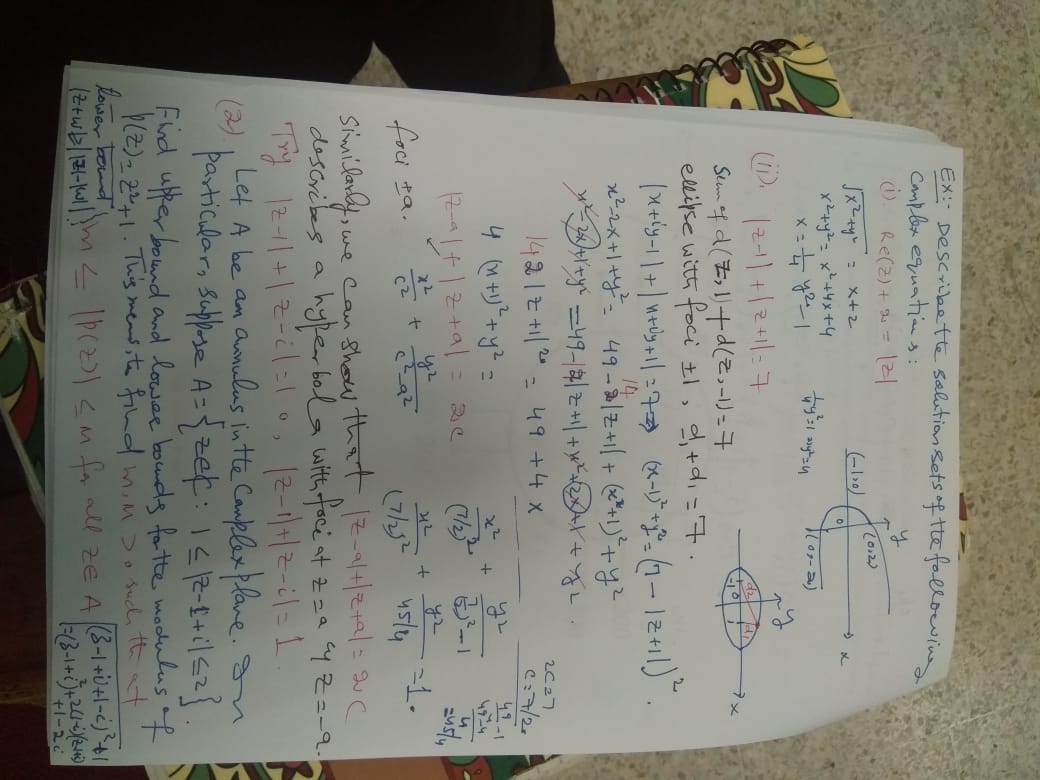 Ex:- Describe the solution sets of the following
complex equations:
(i). Re(z) + 2 = |z|
√x²+y² = x+2
x²+y² = x²+4x+4
x = 1/4 y² - 1
1/4 y² = 1 ⇒ y² = 4
y
(0,2)
(-1,0)
0
x
(0,-2)
(ii). |z-1| + |z+1| = 7
y
d2 d1
-1 0 1
x
Sum of d(z,1) + d(z,-1) = 7
ellipse with foci ±1, d1+d1 = 7.
|x+iy-1| + |x+iy+1| = 7 ⇒ (x-1)²+y² = (7-|z+1|)².
14
x²-2x+1+y² = 49 - 2|z+1| + (x+1)² + y²
x²-2x+1+y² = 49-14|z+1| + x²+2x+1+y².
14 |z+1| = 49 + 4x
4 (x+1)²+y² =
2c=7
c=7/2.
49/4 - 1
49-4/4
=45/4
x²/(7/2)² + y²/(7/2)²-1
|z-a| + |z+a| = 2c
foci ±a. x²/c² + y²/c²-a²
x²/(7/2)² + y²/45/4 = 1.
Similarly, we can show that |z-a|+|z+a| = 2c
describes a hyperbola with foci at z=a z=-a.
Try |z-1|+|z-i|=10, |z-1|+|z-i|=1.
(2) Let A be an annulus in the complex plane. In
particular, suppose A = {z∈ℂ: 1 ≤ |z-1+i| ≤ 2}.
Find upper bound and lower bounds for the modulus of
p(z) = z²+1. This means, to find m, M > 0 such that
lower bound
|z+w| ≥ ||z|-|w|| } m ≤ |p(z)| ≤ M for all z∈A
(z-1+i+1-i)²+1
=(z-1+i)²+2(1-i)(z-1+i)
+1-2i